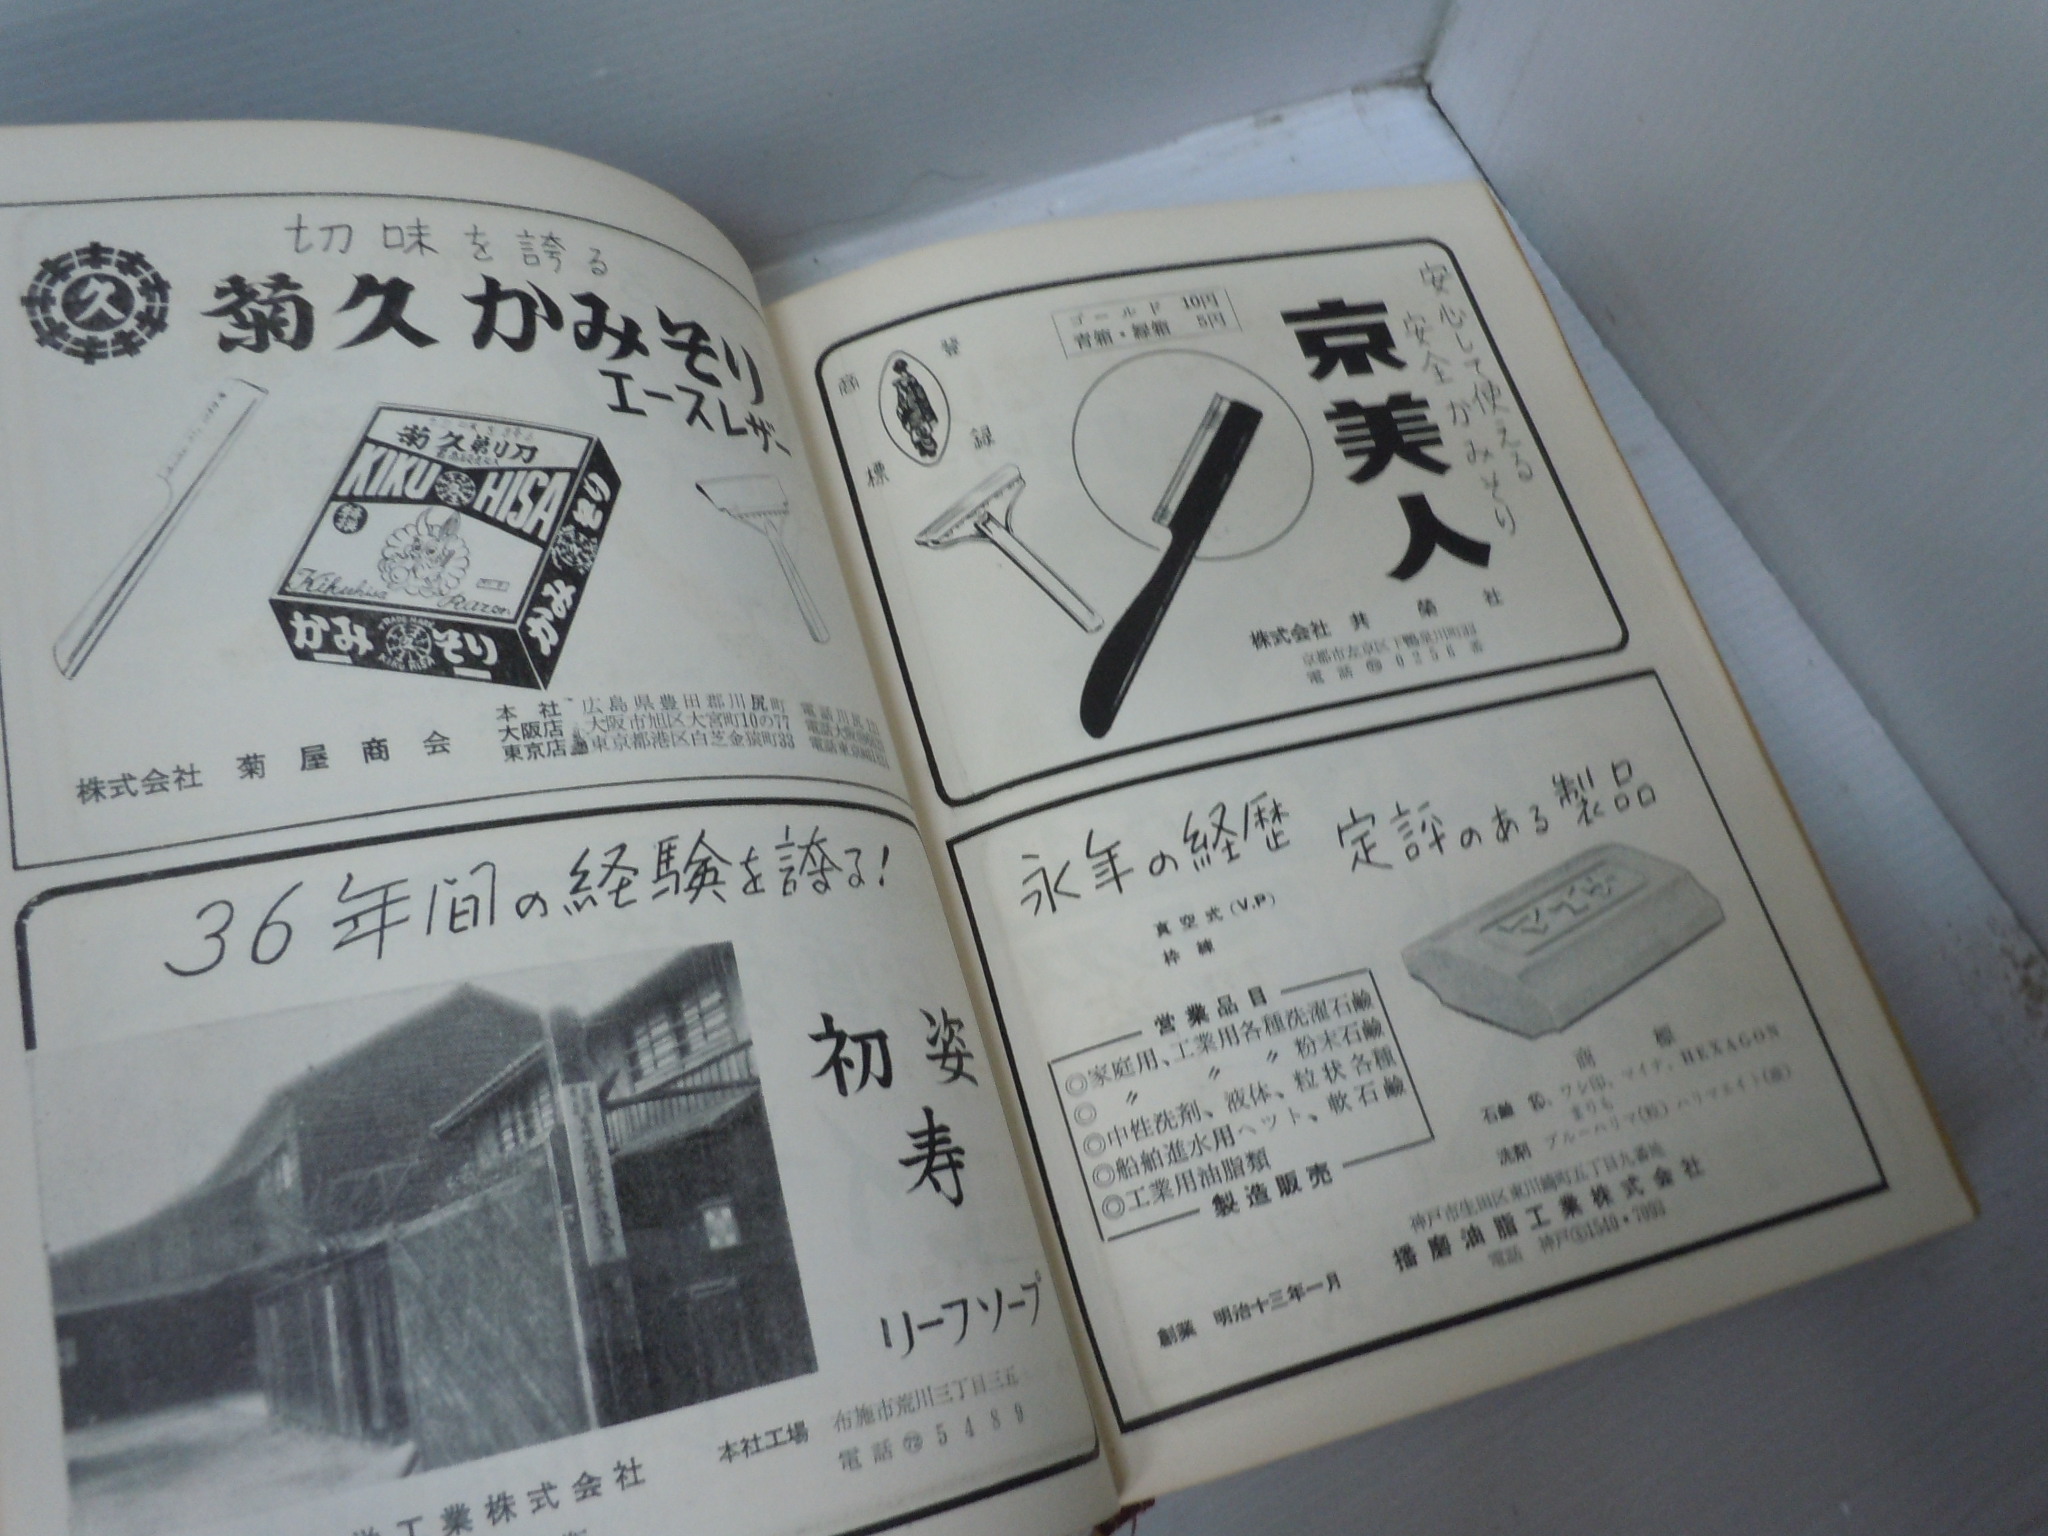 切味を誇る
久
菊久かみそり
エースレザー
菊久剃刀
KIKU HISA
特撰
Kikuhisa
Razor
かみそり
TRADE MARK
KIKU HISA
かみそり
株式会社 菊屋商会
本社 広島県豊田郡川尻町
大阪店 大阪市旭区大宮町10の77
東京店 東京都港区白芝金猿町33
36年間の経験を誇る!
姿
初
寿
リーフソープ
本社工場 布施市荒川三丁目三五
電話 5489
工業株式会社
安心して使える
安全かみそり
京美人
ゴールド 10円
青箱・緑箱 5円
登録
商標
株式会社 共栄社
京都市左京区下鴨泉川町33
電話 0256番
永年の経歴 定評のある製品
真空式(V.P)
枠練
営業品目
◎家庭用、工業用各種洗濯石鹸
◎ 〃 〃 粉末石鹸
◎中性洗剤、液体、粒状各種
◎船舶進水用ヘット、軟石鹸
◎工業用油脂類
製造販売
商標
石鹸 ワシ印、マイチ、HEXAGON
まりも
洗剤 ブルーハリマ(粒)ハリマエイト(液)
神戸市生田区東川崎町五丁目九番地
播磨油脂工業株式会社
電話 神戸④1549・7093
創業 明治十三年一月